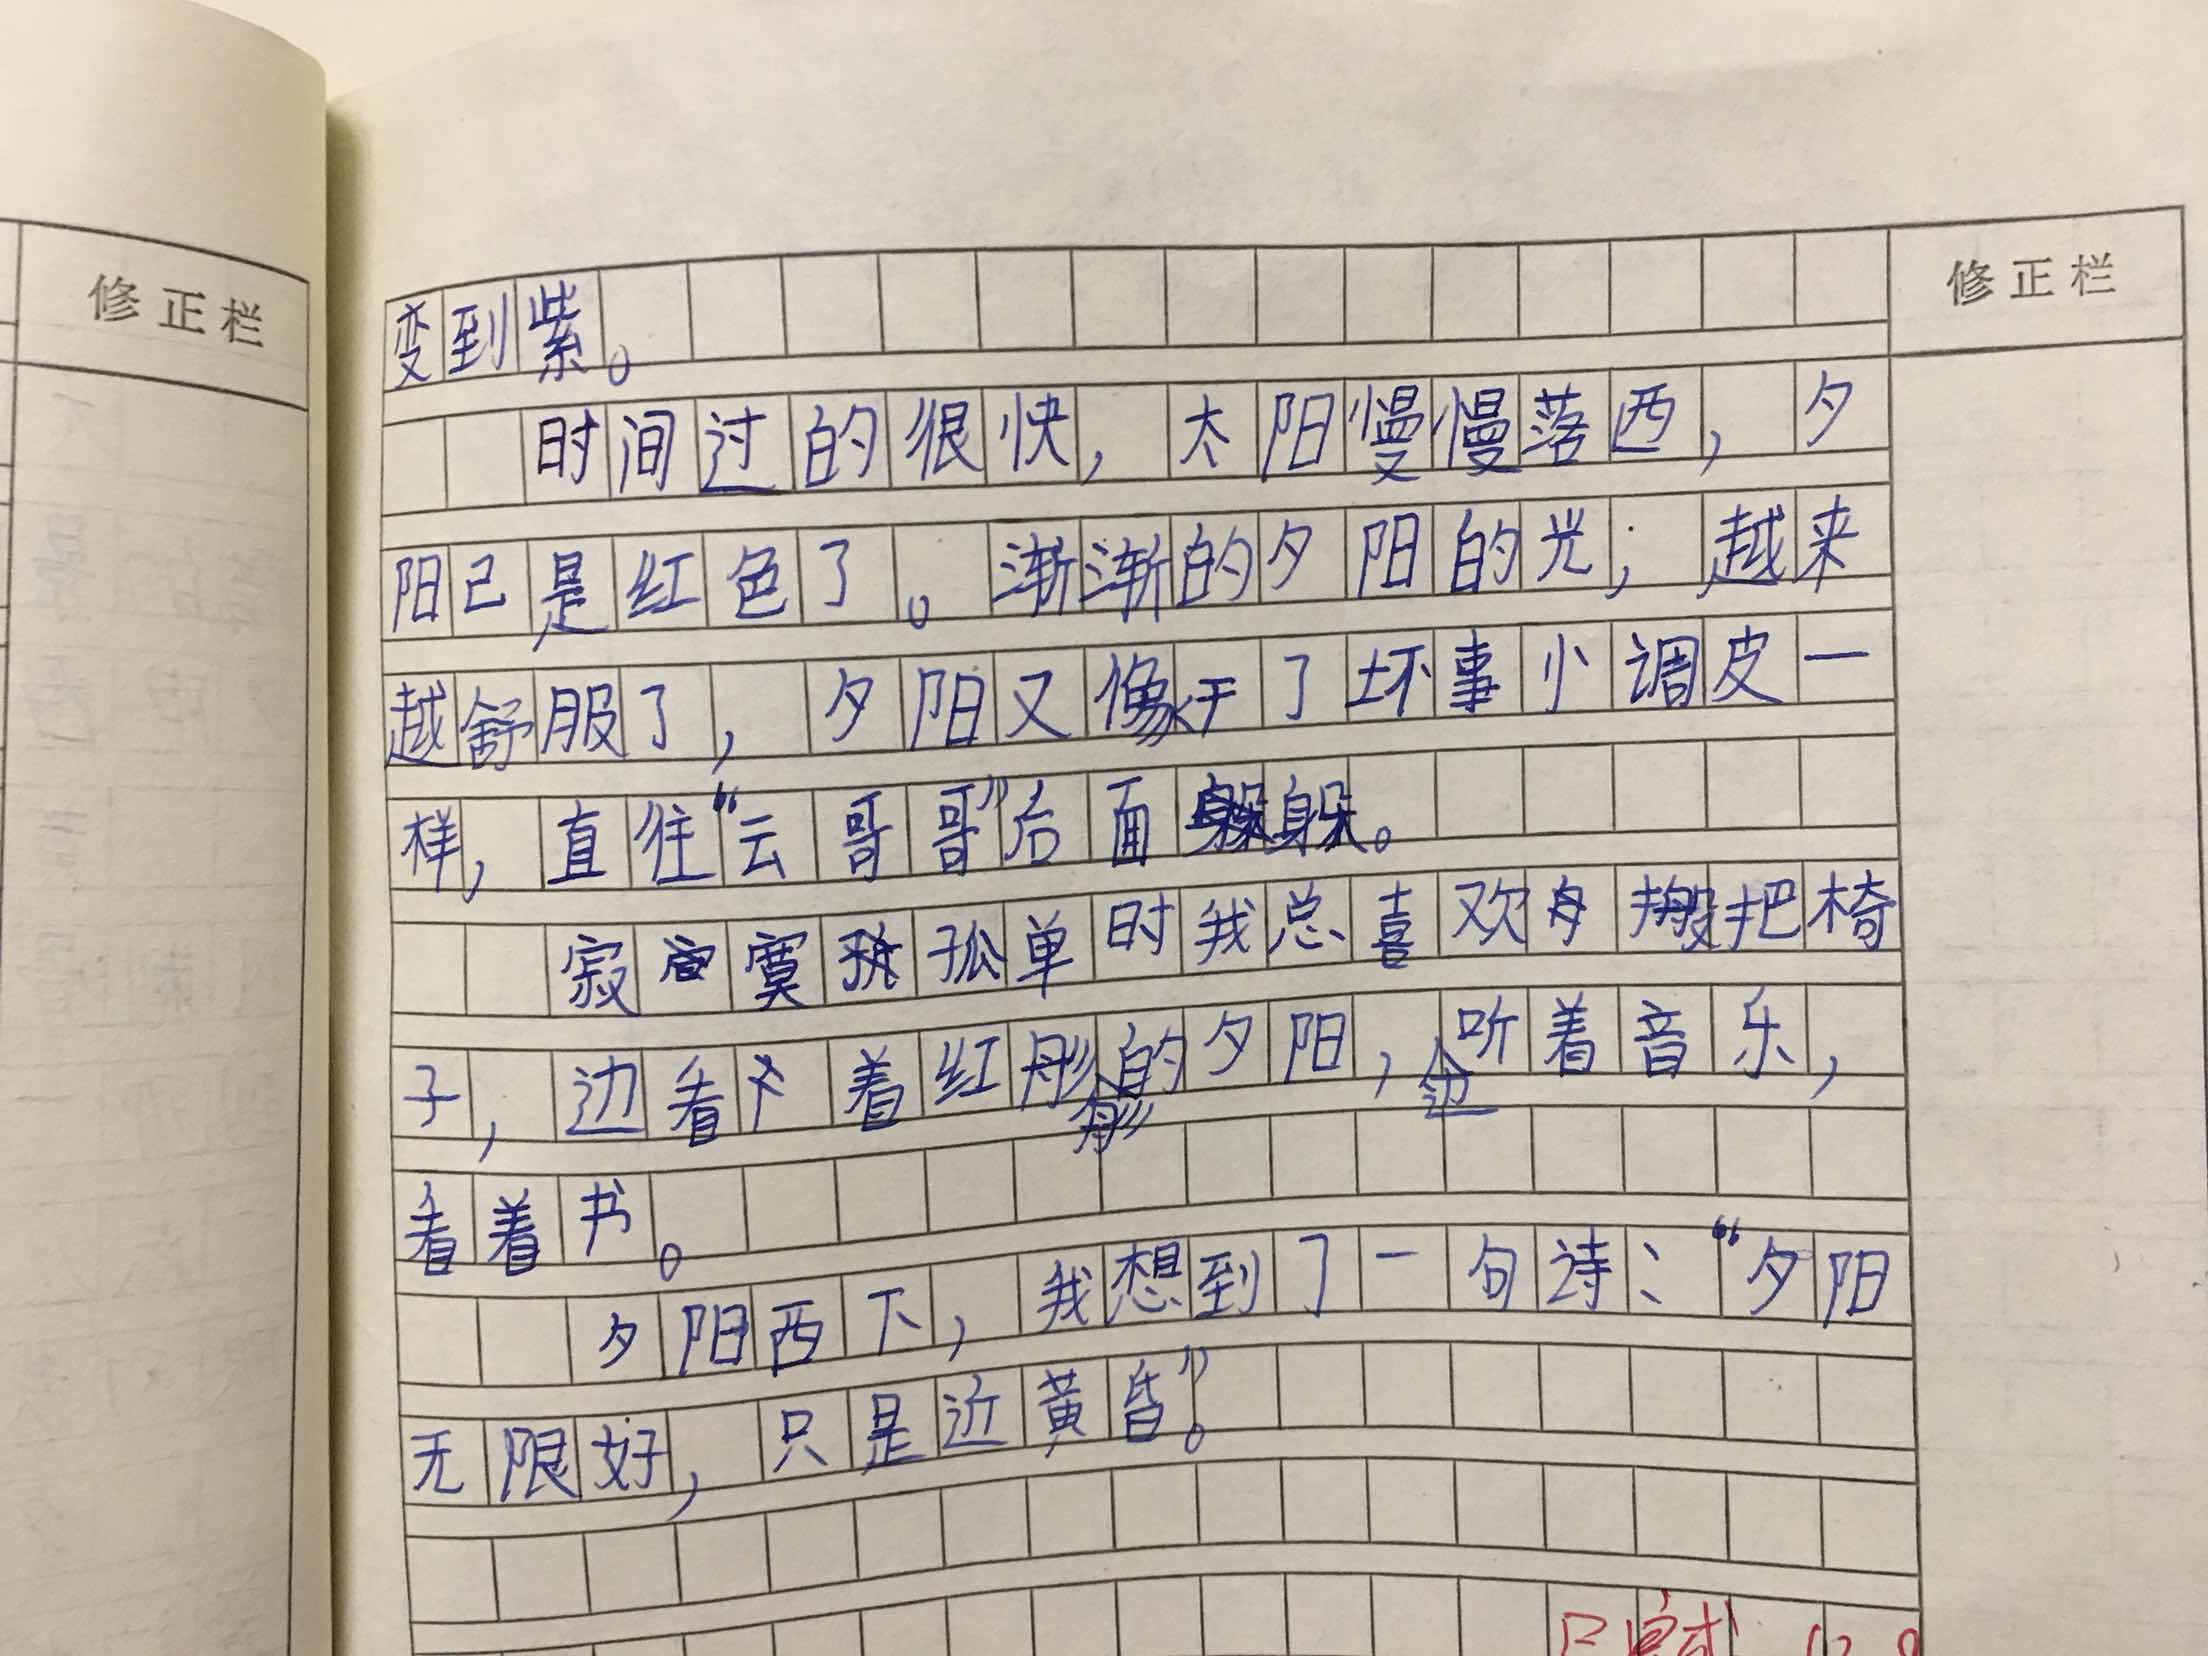 修正栏
修正栏
变到紫。
时间过的很快，太阳慢慢落西，夕
阳己是红色了。渐渐的夕阳的光；越来
越舒服了，夕阳又像干了坏事小调皮一
样，直往“云哥哥”后面躲躲。
寂寞孤单时我总喜欢搬把椅
子，边看着红彤彤的夕阳，边听着音乐，
看着书。
夕阳西下，我想到了一句诗：“夕阳
无限好，只是近黄昏”。